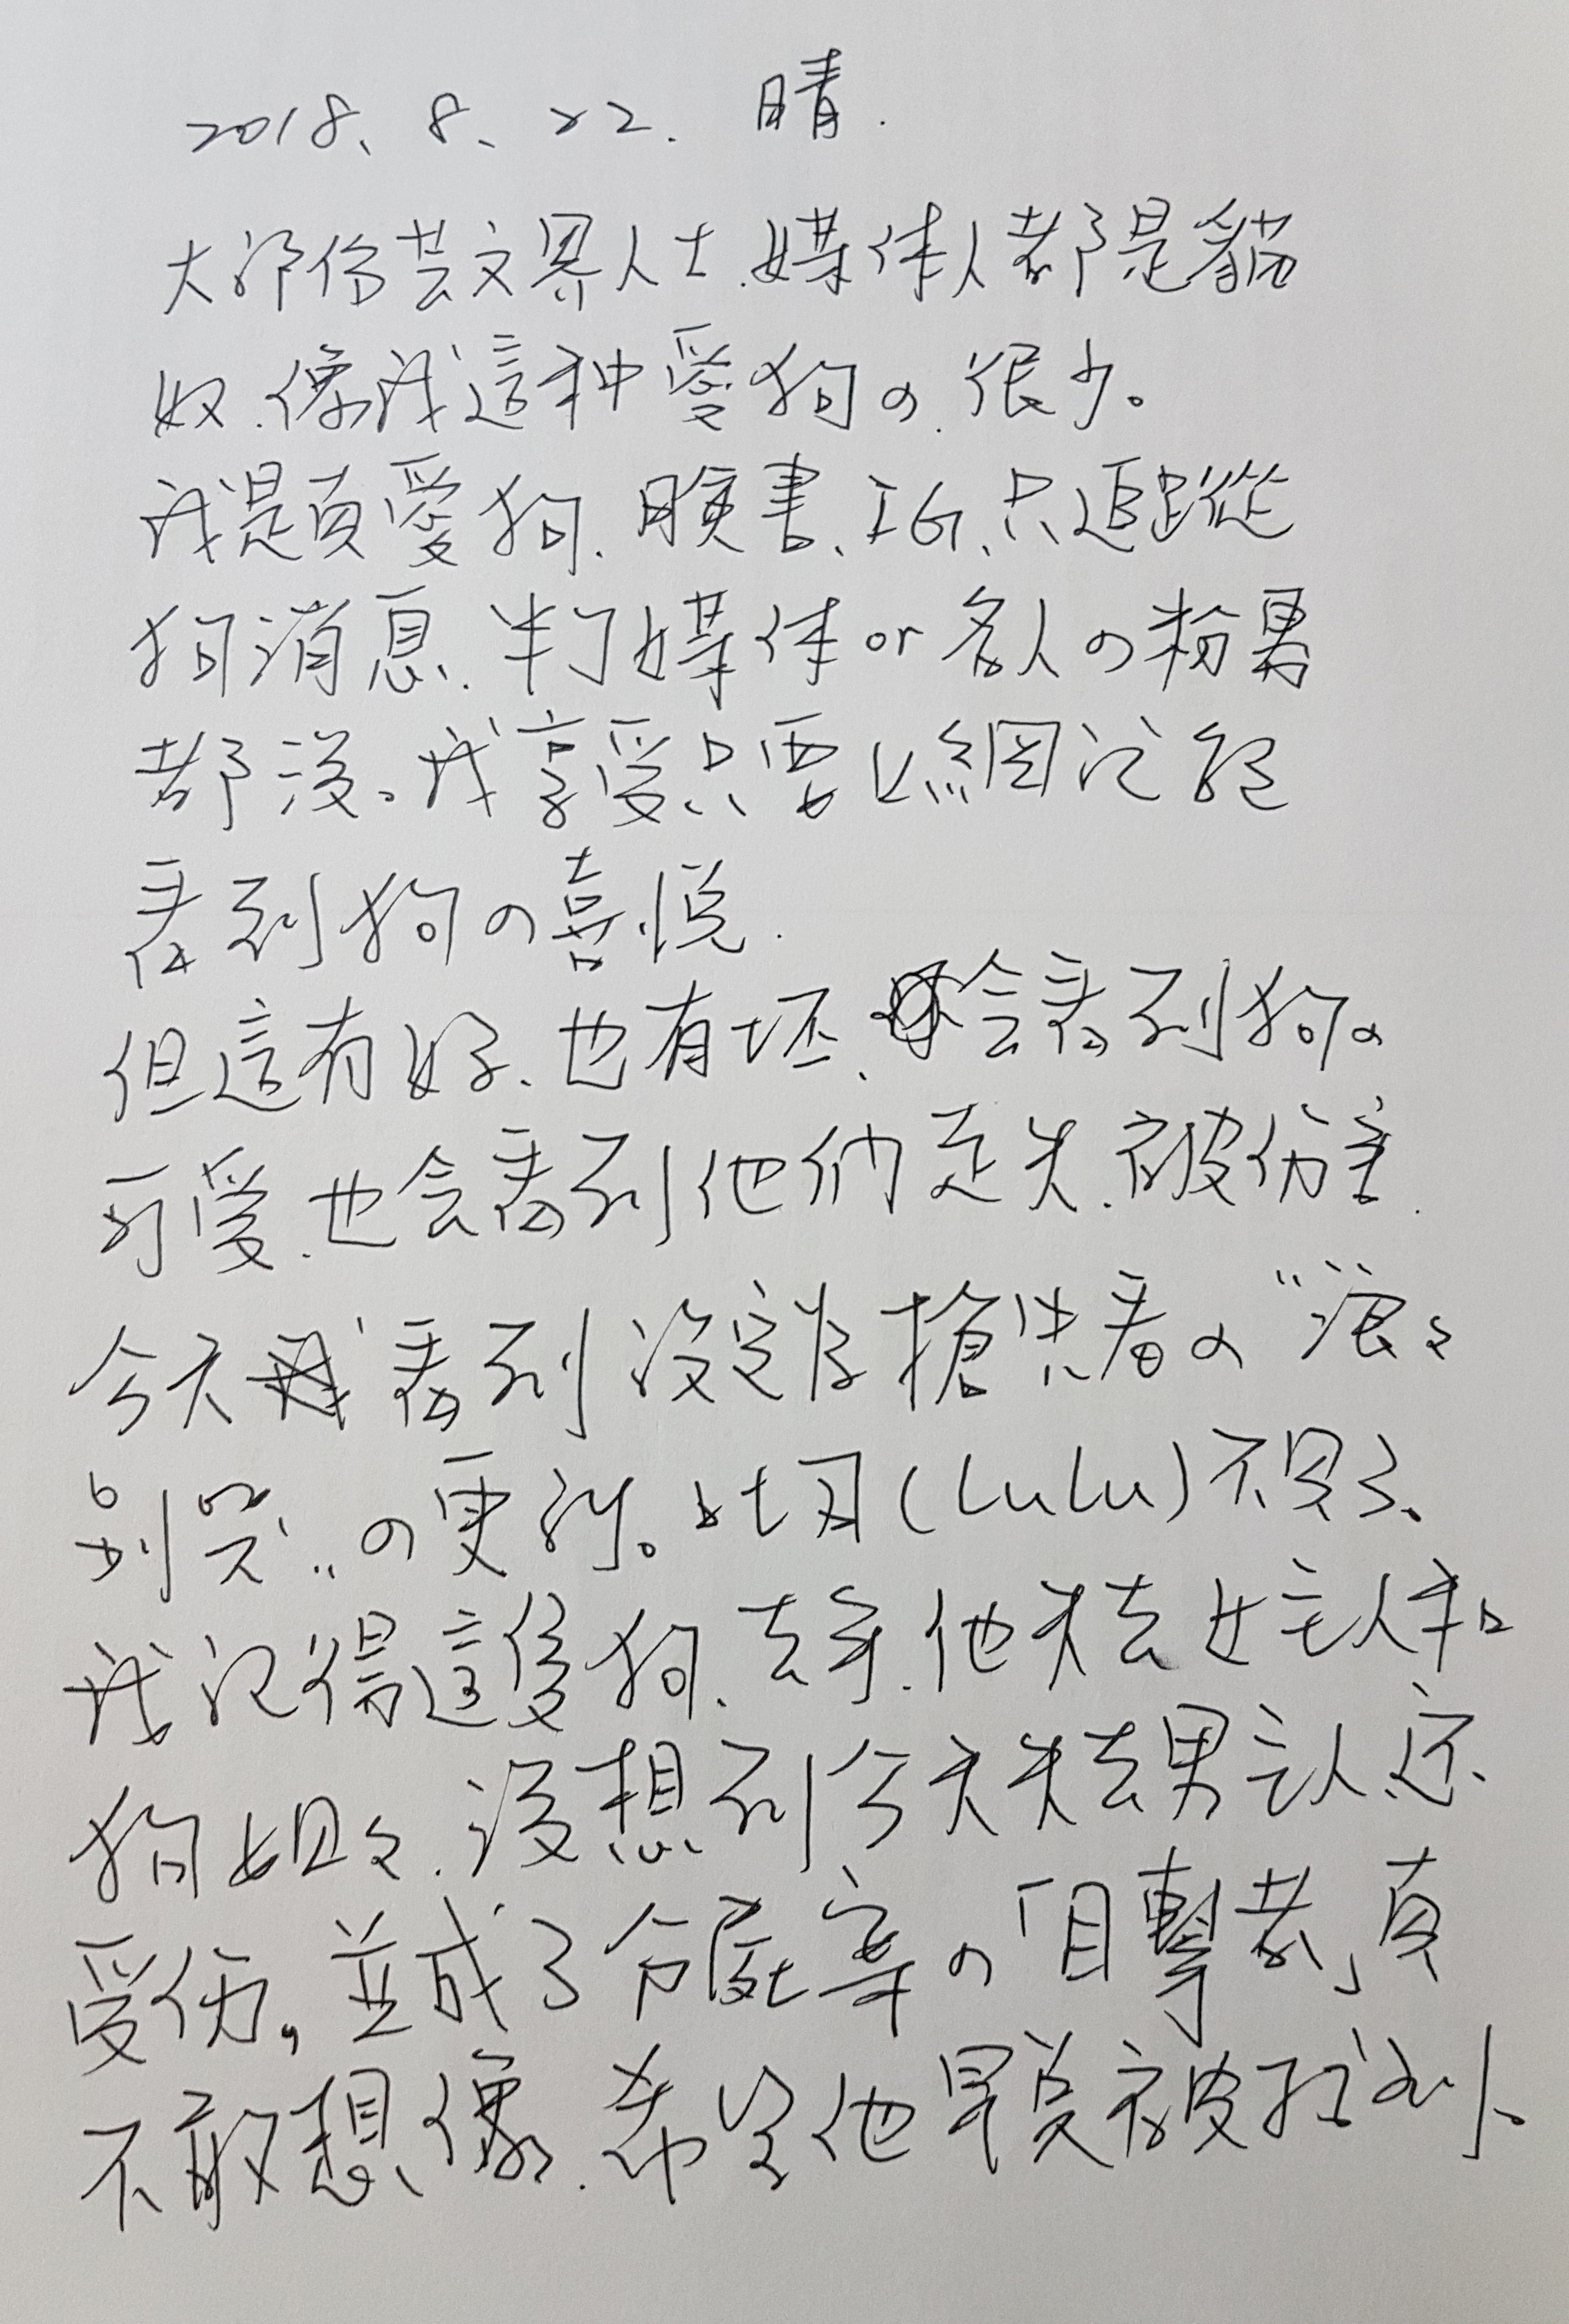 2018、8、22. 晴.
大部份芸文界人士.媒体人都是貓
奴.像我這种愛狗の.很少。
我是真愛狗.臉書、IG、只追蹤
狗消息.半个媒体or名人の粉專
都沒。我享受只要上網就能
看到狗の喜悅.
但這有好、也有坏、會看到狗の
可愛.也会看到他們走失.被伤害.
今天看到設定為搶先看の"浪々
別哭"の更新。吐司(LuLu)不見了、
我記得這隻狗、去年.他失去女主人和
狗姐々.沒想到今天失去男主人还
受伤。並成了命案の「目擊者」真
不敢想像.希望他早點被找到、